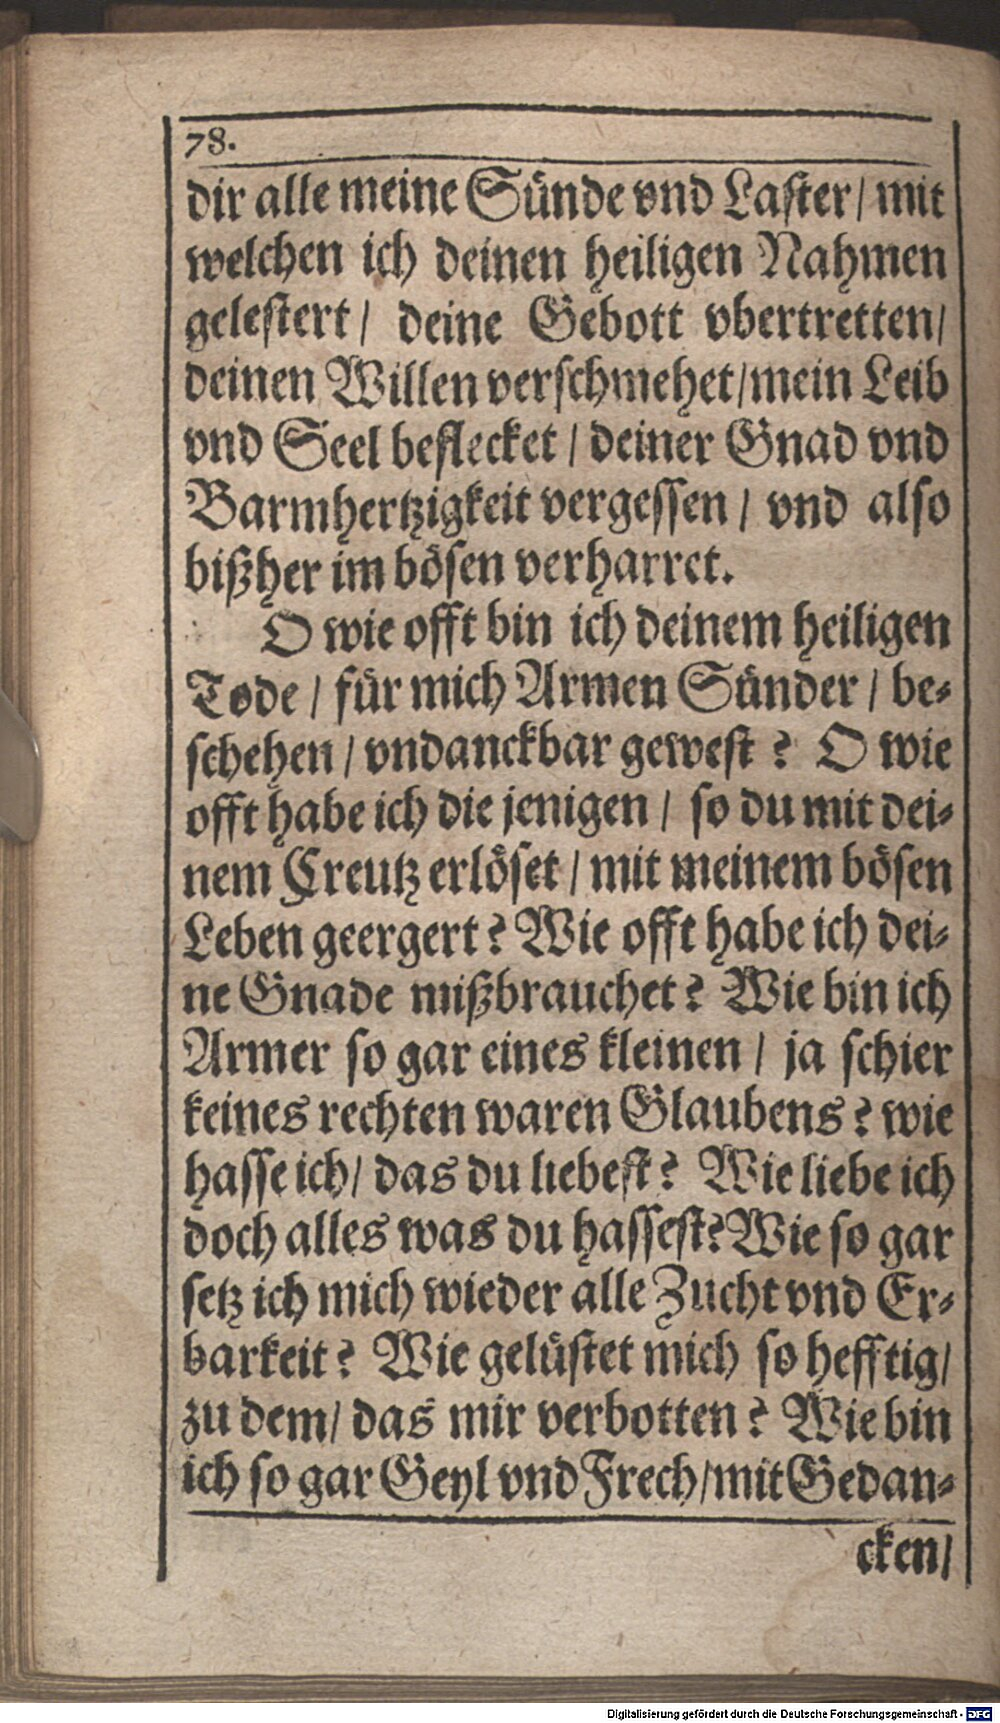 78.
dir alle meine Sünde vnd Laster / mit
welchen ich deinen heiligen Nahmen
gelestert / deine Gebott vbertretten /
deinen Willen verschmehet / mein Leib
vnd Seel beflecket / deiner Gnad vnd
Barmhertzigkeit vergessen / vnd also
bißher im bösen verharret.
O wie offt bin ich deinem heiligen
Tode / für mich Armen Sünder / be-
schehen / vndanckbar gewest ? O wie
offt habe ich die jenigen / so du mit dei-
nem Creutz erlöset / mit meinem bösen
Leben geergert ? Wie offt habe ich dei-
ne Gnade mißbrauchet ? Wie bin ich
Armer so gar eines kleinen / ja schier
keines rechten waren Glaubens ? wie
hasse ich / das du liebest ? Wie liebe ich
doch alles was du hassest ? Wie so gar
setz ich mich wieder alle Zucht vnd Er-
barkeit ? Wie gelüstet mich so hefftig /
zu dem / das mir verbotten ? Wie bin
ich so gar Geyl vnd Frech / mit Gedan-
cken /
Digitalisierung gefördert durch die Deutsche Forschungsgemeinschaft - DFG